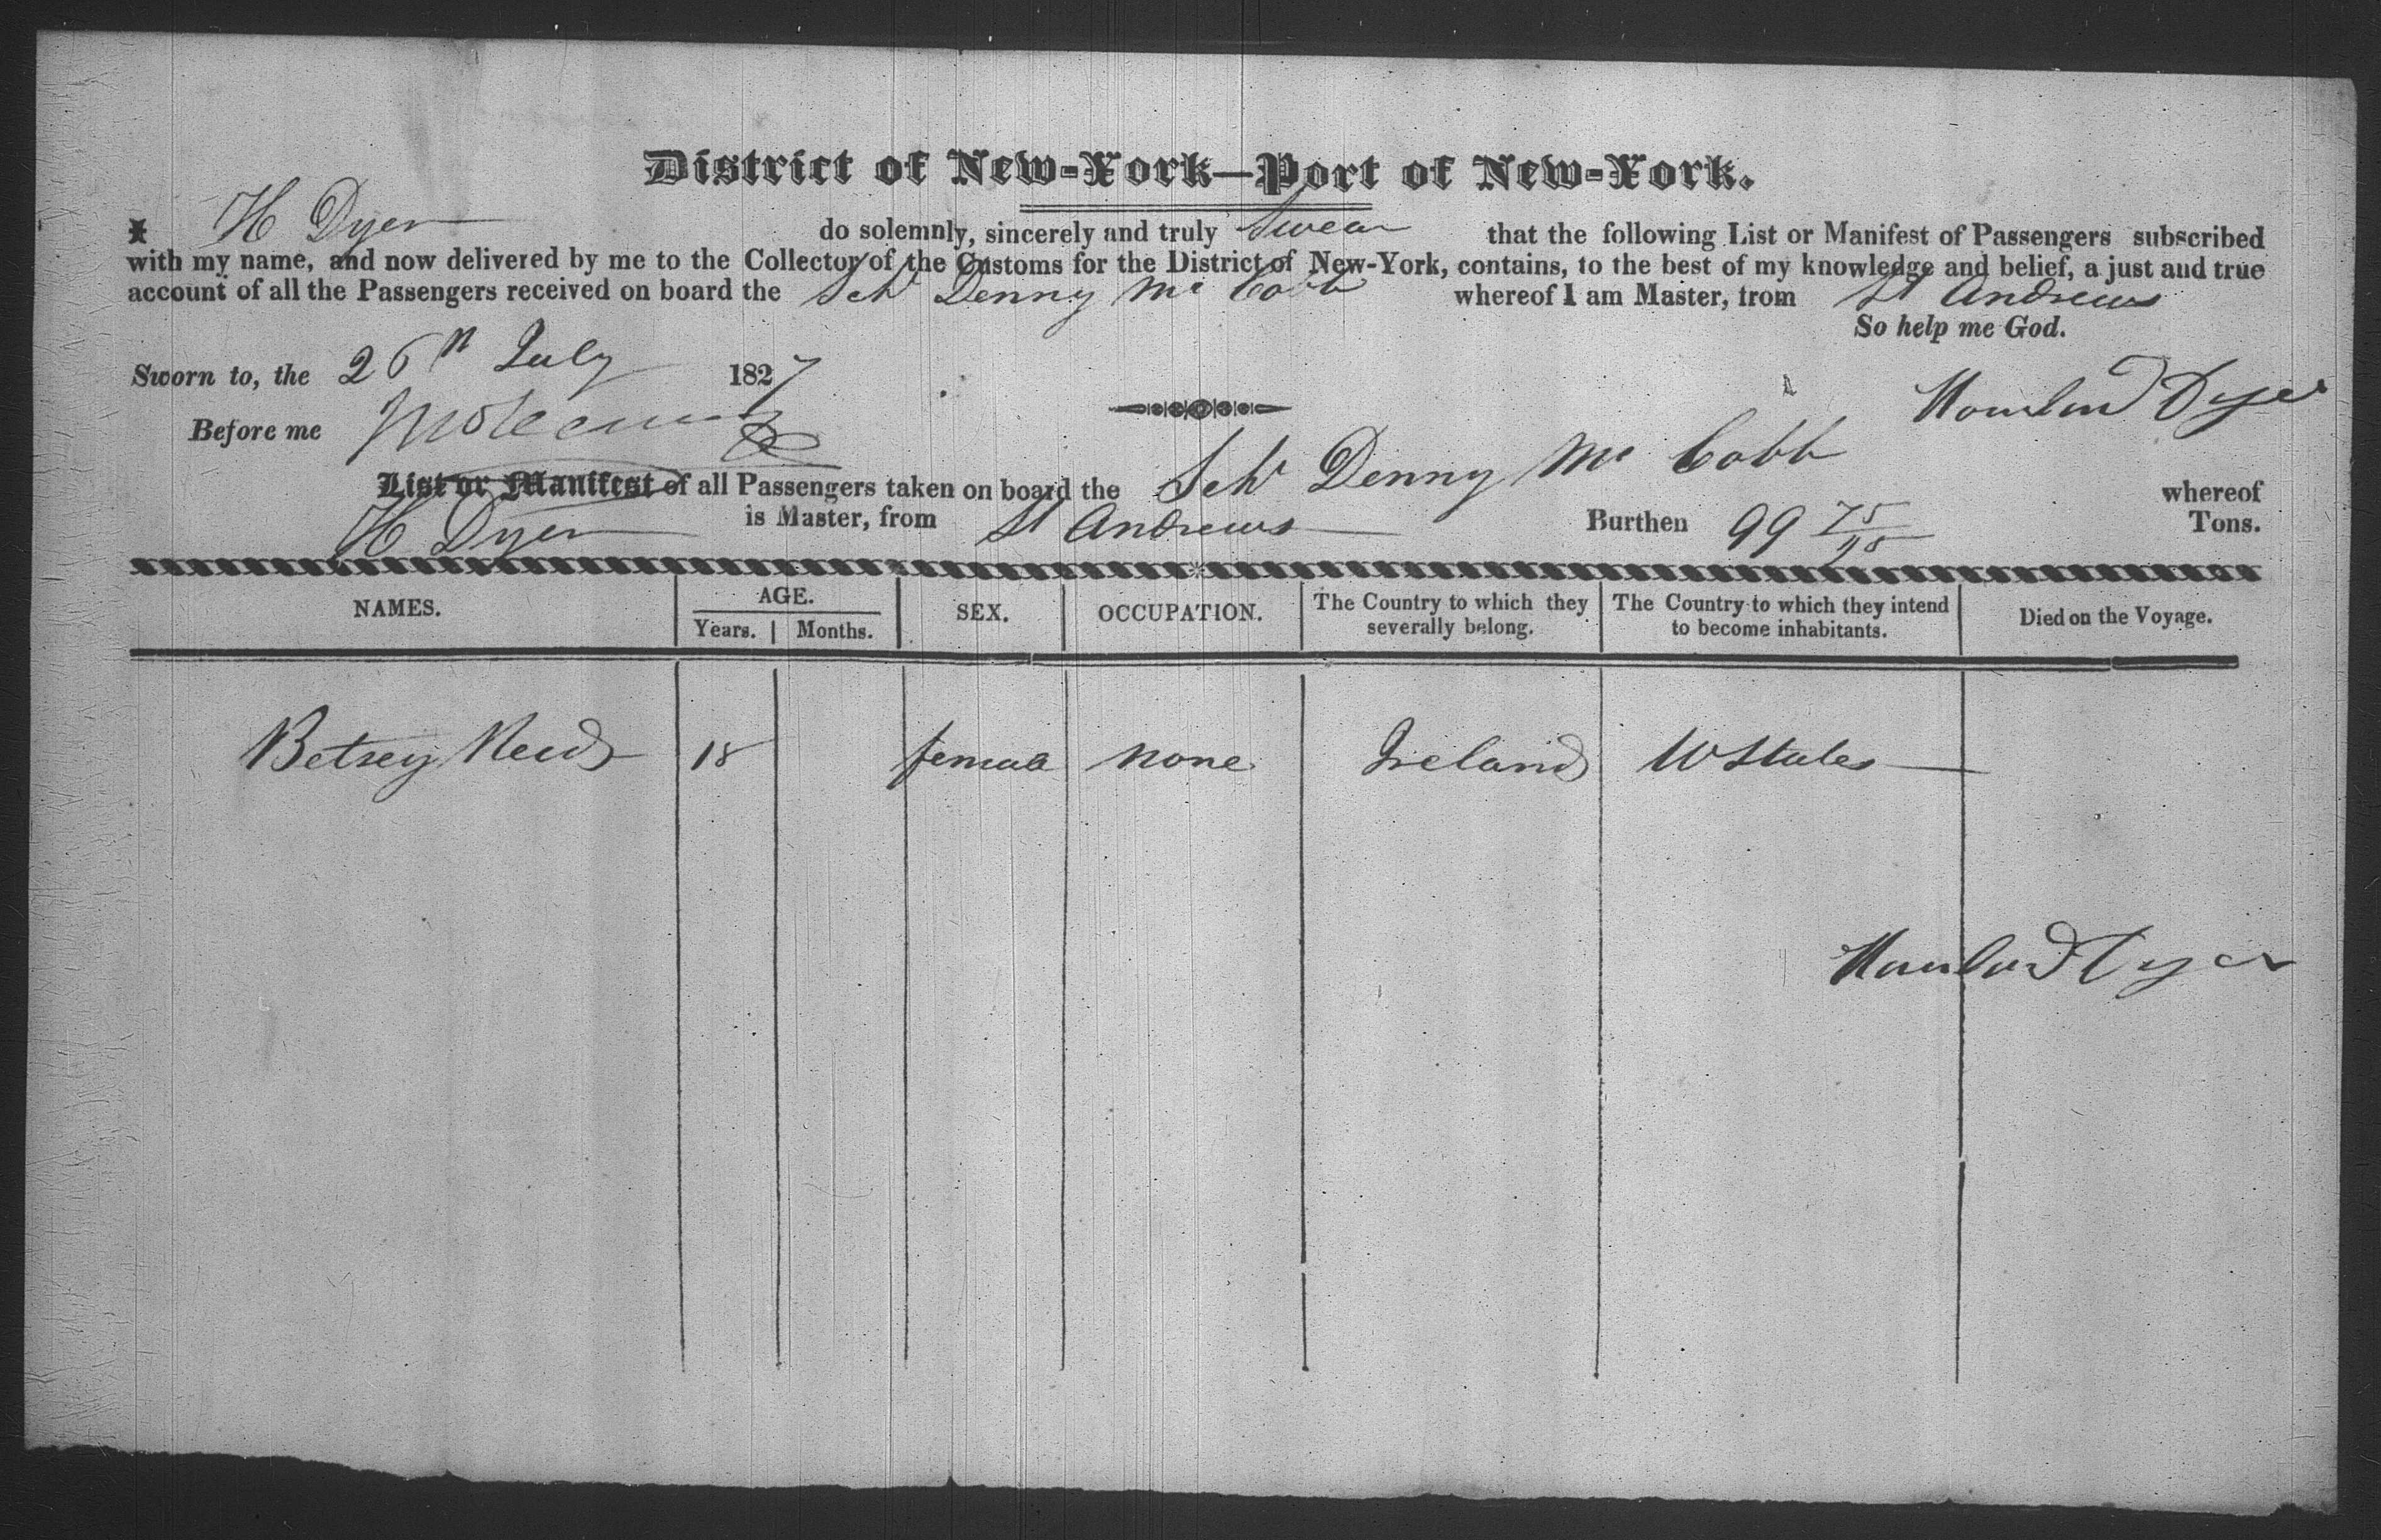 District of New-York—Port of New-York.
I H Dyer do solemnly, sincerely and truly Swear that the following List or Manifest of Passengers subscribed
with my name, and now delivered by me to the Collector of the Customs for the District of New-York, contains, to the best of my knowledge and belief, a just and true
account of all the Passengers received on board the Schr Denny Mc Cobb whereof I am Master, from St Andrews
So help me God.
Sworn to, the 26th July 1827
Dyer
Before me
List or Manifest of all Passengers taken on board the Schr Denny Mc Cobb whereof
H Dyer is Master, from St Andrews Burthen 99 75/95 Tons.
NAMES. AGE. SEX. OCCUPATION. The Country to which they severally belong. The Country to which they intend to become inhabitants. Died on the Voyage.
Years. Months.
Betsey 18 female none Ireland U States
Dyer